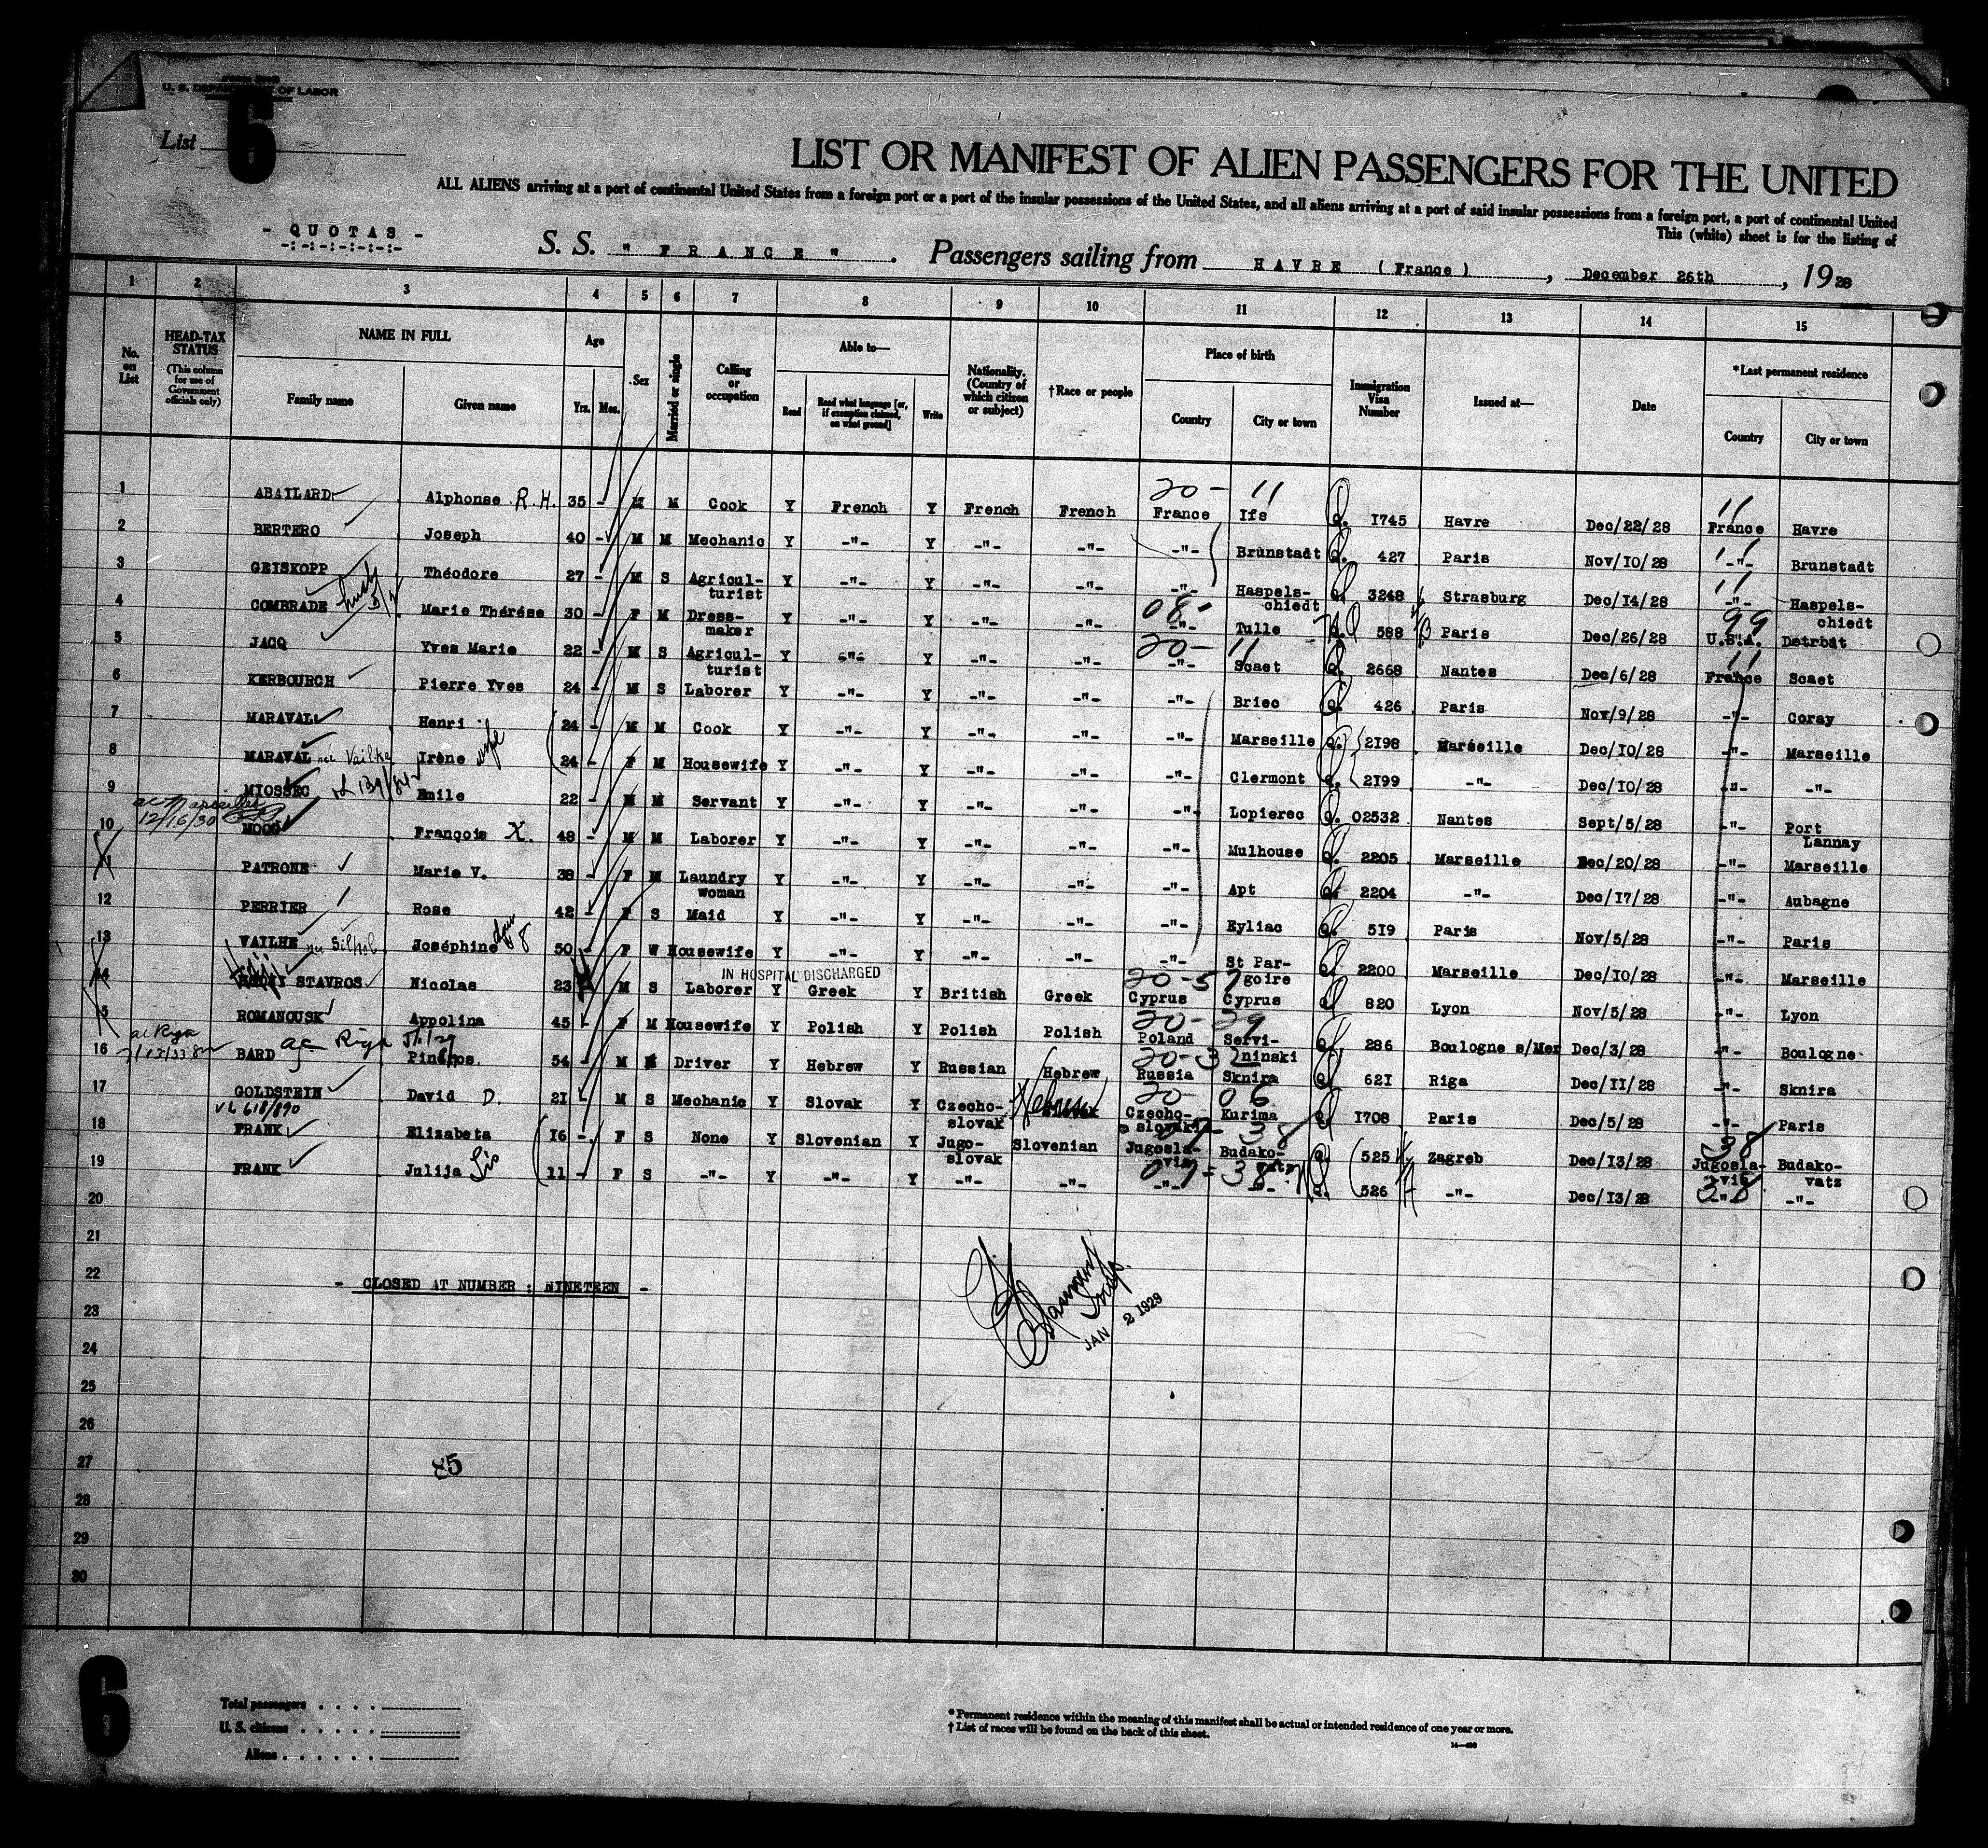 U. S. DEPARTMENT OF LABOR
List 6
LIST OR MANIFEST OF ALIEN PASSENGERS FOR THE UNITED
ALL ALIENS arriving at a port of continental United States from a foreign port or a port of the insular possessions of the United States, and all aliens arriving at a port of said insular possessions from a foreign port, a port of continental United
This (white) sheet is for the listing of
- QUOTAS -
-:-:-:-:-:-:-
S. S. " FRANCE ". Passengers sailing from HAVRE (France), December 26th, 1928
1 2 3 4 5 6 7 8 9 10 11 12 13 14 15
No. on List
HEAD-TAX STATUS (This column for use of Government officials only)
NAME IN FULL
Family name Given name
Age
Yrs. Mos.
Sex
Married or single
Calling or occupation
Able to—
Read Read what language [or, if exemption claimed, on what ground] Write
Nationality. (Country of which citizen or subject)
†Race or people
Place of birth
Country City or town
Immigration Visa Number
Issued at—
Date
*Last permanent residence
Country City or town
20- 11 11
1 ABAILARD Alphonse R.H. 35 - M M Cook Y French Y French French France Ifs Q. 1745 Havre Dec/22/28 France Havre
2 BERTERO Joseph 40 - M M Mechanic Y -"- Y -"- -"- -"- Brunstadt Q. 427 Paris Nov/10/28 -"- Brunstadt
3 GEISKOPP Théodore 27 - M S Agricul-turist Y -"- Y -"- -"- -"- Haspels-chiedt Q 3248 Strasburg Dec/14/28 -"- Haspels-chiedt
08- 99
4 COMBRADE Marie Thérése 30 - F M Dress-maker Y -"- Y -"- -"- -"- Tulle 588 Paris Dec/26/28 U.S.A. Detroit
20- 11 11
5 JACQ Yves Marie 22 - M S Agricul-turist Y -"- Y -"- -"- -"- Scaet Q 2668 Nantes Dec/6/28 France Scaet
6 KERBOURCH Pierre Yves 24 - M S Laborer Y -"- Y -"- -"- -"- Briec Q. 426 Paris Nov/9/28 -"- Coray
7 MARAVAL Henri 24 - M M Cook Y -"- Y -"- -"- -"- Marseille Q. 2198 Marseille Dec/10/28 -"- Marseille
8 MARAVAL née Vailhe Irène wife 24 - F M Housewife Y -"- Y -"- -"- -"- Clermont Q. 2199 -"- Dec/10/28 -"- -"-
9 MIOSSEC Emile 22 - M M Servant Y -"- Y -"- -"- -"- Lopierec Q. 02532 Nantes Sept/5/28 -"- Port Lannay
12/16/30
10 MOOG François X. 48 - M M Laborer Y -"- Y -"- -"- -"- Mulhouse Q. 2205 Marseille Dec/20/28 -"- Marseille
11 PATRONE Marie V. 38 - F M Laundry woman Y -"- Y -"- -"- -"- Apt Q. 2204 -"- Dec/17/28 -"- Aubagne
12 PERRIER Rose 42 - F S Maid Y -"- Y -"- -"- -"- Eyliac Q. 519 Paris Nov/5/28 -"- Paris
13 VAILHE Joséphine 50 - F W Housewife Y -"- Y -"- -"- -"- St Par-goire Q 2200 Marseille Dec/10/28 -"- Marseille
IN HOSPITAL DISCHARGED
20-57
14 STAVROS Nicolas 23 M S Laborer Y Greek Y British Greek Cyprus Cyprus Q 820 Lyon Nov/5/28 -"- Lyon
20-29
15 ROMANOUSK Appolina 45 - F M Housewife Y Polish Y Polish Polish Poland Servi-ninski Q. 286 Boulogne s/Mer Dec/3/28 -"- Boulogne
ac Riga
20-32
16 BARD Pinchos 54 - M M Driver Y Hebrew Y Russian Hebrew Russia Sknira Q 621 Riga Dec/11/28 -"- Sknira
20 06
17 GOLDSTEIN David D. 21 - M S Mechanic Y Slovak Y Czecho-slovak Hebrew Czecho-slovak Kurima Q 1708 Paris Dec/5/28 -"- Paris
VL 618/890
07-38 38
18 FRANK Elizabeta 16 - F S None Y Slovenian Y Jugo-slovak Slovenian Jugosla-via Budako-vatz Q 525 Zagreb Dec/13/28 Jugosla-via Budako-vatz
07-38 38
19 FRANK Julija Sis 11 - F S -"- Y -"- Y -"- -"- -"- -"- Q. 526 -"- Dec/13/28 -"- -"-
20
21
22 - CLOSED AT NUMBER : NINETEEN -
JAN 2 1929
23
24
25
26
27
28
29
30
6
Total passengers
U. S. citizens
Aliens
* Permanent residence within the meaning of this manifest shall be actual or intended residence of one year or more.
† List of races will be found on the back of this sheet.